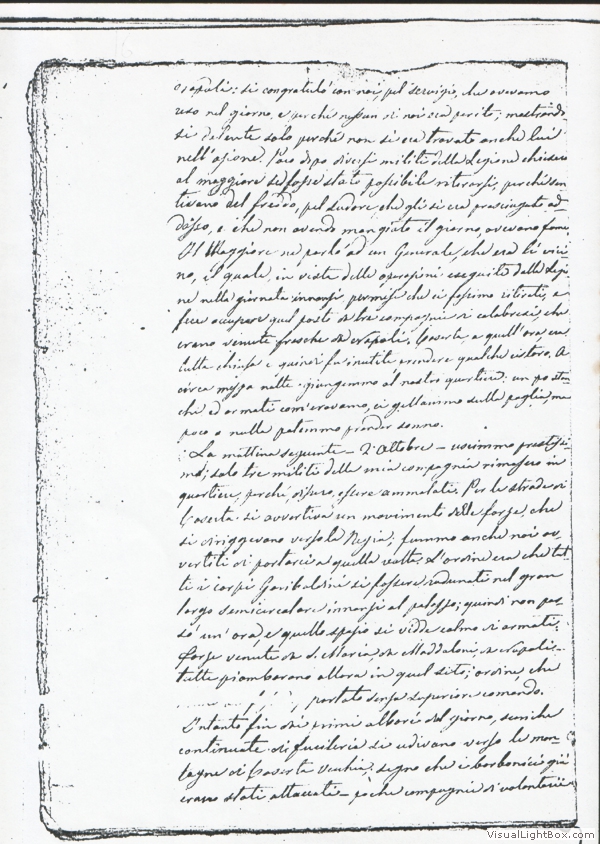 Napoli: si congratulò con noi, pel servizio, che avevamo
reso nel giorno, e perchè nessun di noi era perito; mostrando
si dolente solo perchè non si era trovato anche lui
nell'azione. Poco dopo diversi militi della Legione chiesero
al maggiore se fosse stato possibile ritirarsi, perchè sen
tivano del freddo, pel sudore che gli si era prosciugato ad
dosso, e che non avendo mangiato il giorno, avevano fame
Il Maggiore ne parlò ad un Generale, che era lì vici
no, il quale, in vista delle operazioni eseguite dalla Legio
ne nella giornata innanzi, permise che ci fossimo ritirati, e
fece occupare quel posto da tre compagnie di calabresi, che
erano venute fresche da Napoli. Caserta a quell'ora era
tutta chiusa e quindi fu inutile prendere qualche ristoro. A
circa mezza notte giungemmo al nostro quartiere: un po stan
chi ed armati com'eravamo, ci gettammo sulla paglia, ma
poco o nulla potemmo prender sonno.
La mattina seguente – 2 Ottobre – uscimmo prestissi
mo; solo tre militi della mia compagnia rimasero in
quartiere, perchè dissero, essere ammalati. Per le strade di
Caserta si avvertiva un movimento delle forze, che
si dirigevano verso la Regia; fummo anche noi av
vertiti di portarci a quella volta. L'ordine era che tut
ti i corpi Garibaldini si fossero radunati nel gran
largo semicircolare innanzi al palazzo; quindi non pas
sò un'ora, e quello spazio si vidde colmo di armati;
forze venute da S. Maria, da Maddaloni, da Napoli,
tutte piombarono allora in quel sito; ordine che
portato senza superiore comando.
Intanto fin dai primi albori del giorno, scariche
continuate di fucileria si udivano verso le mon
tagne di Caserta Vecchia, segno che i borbonici già
erano stati attaccati – poche compagnie di volontarii
VisualLightBox.com